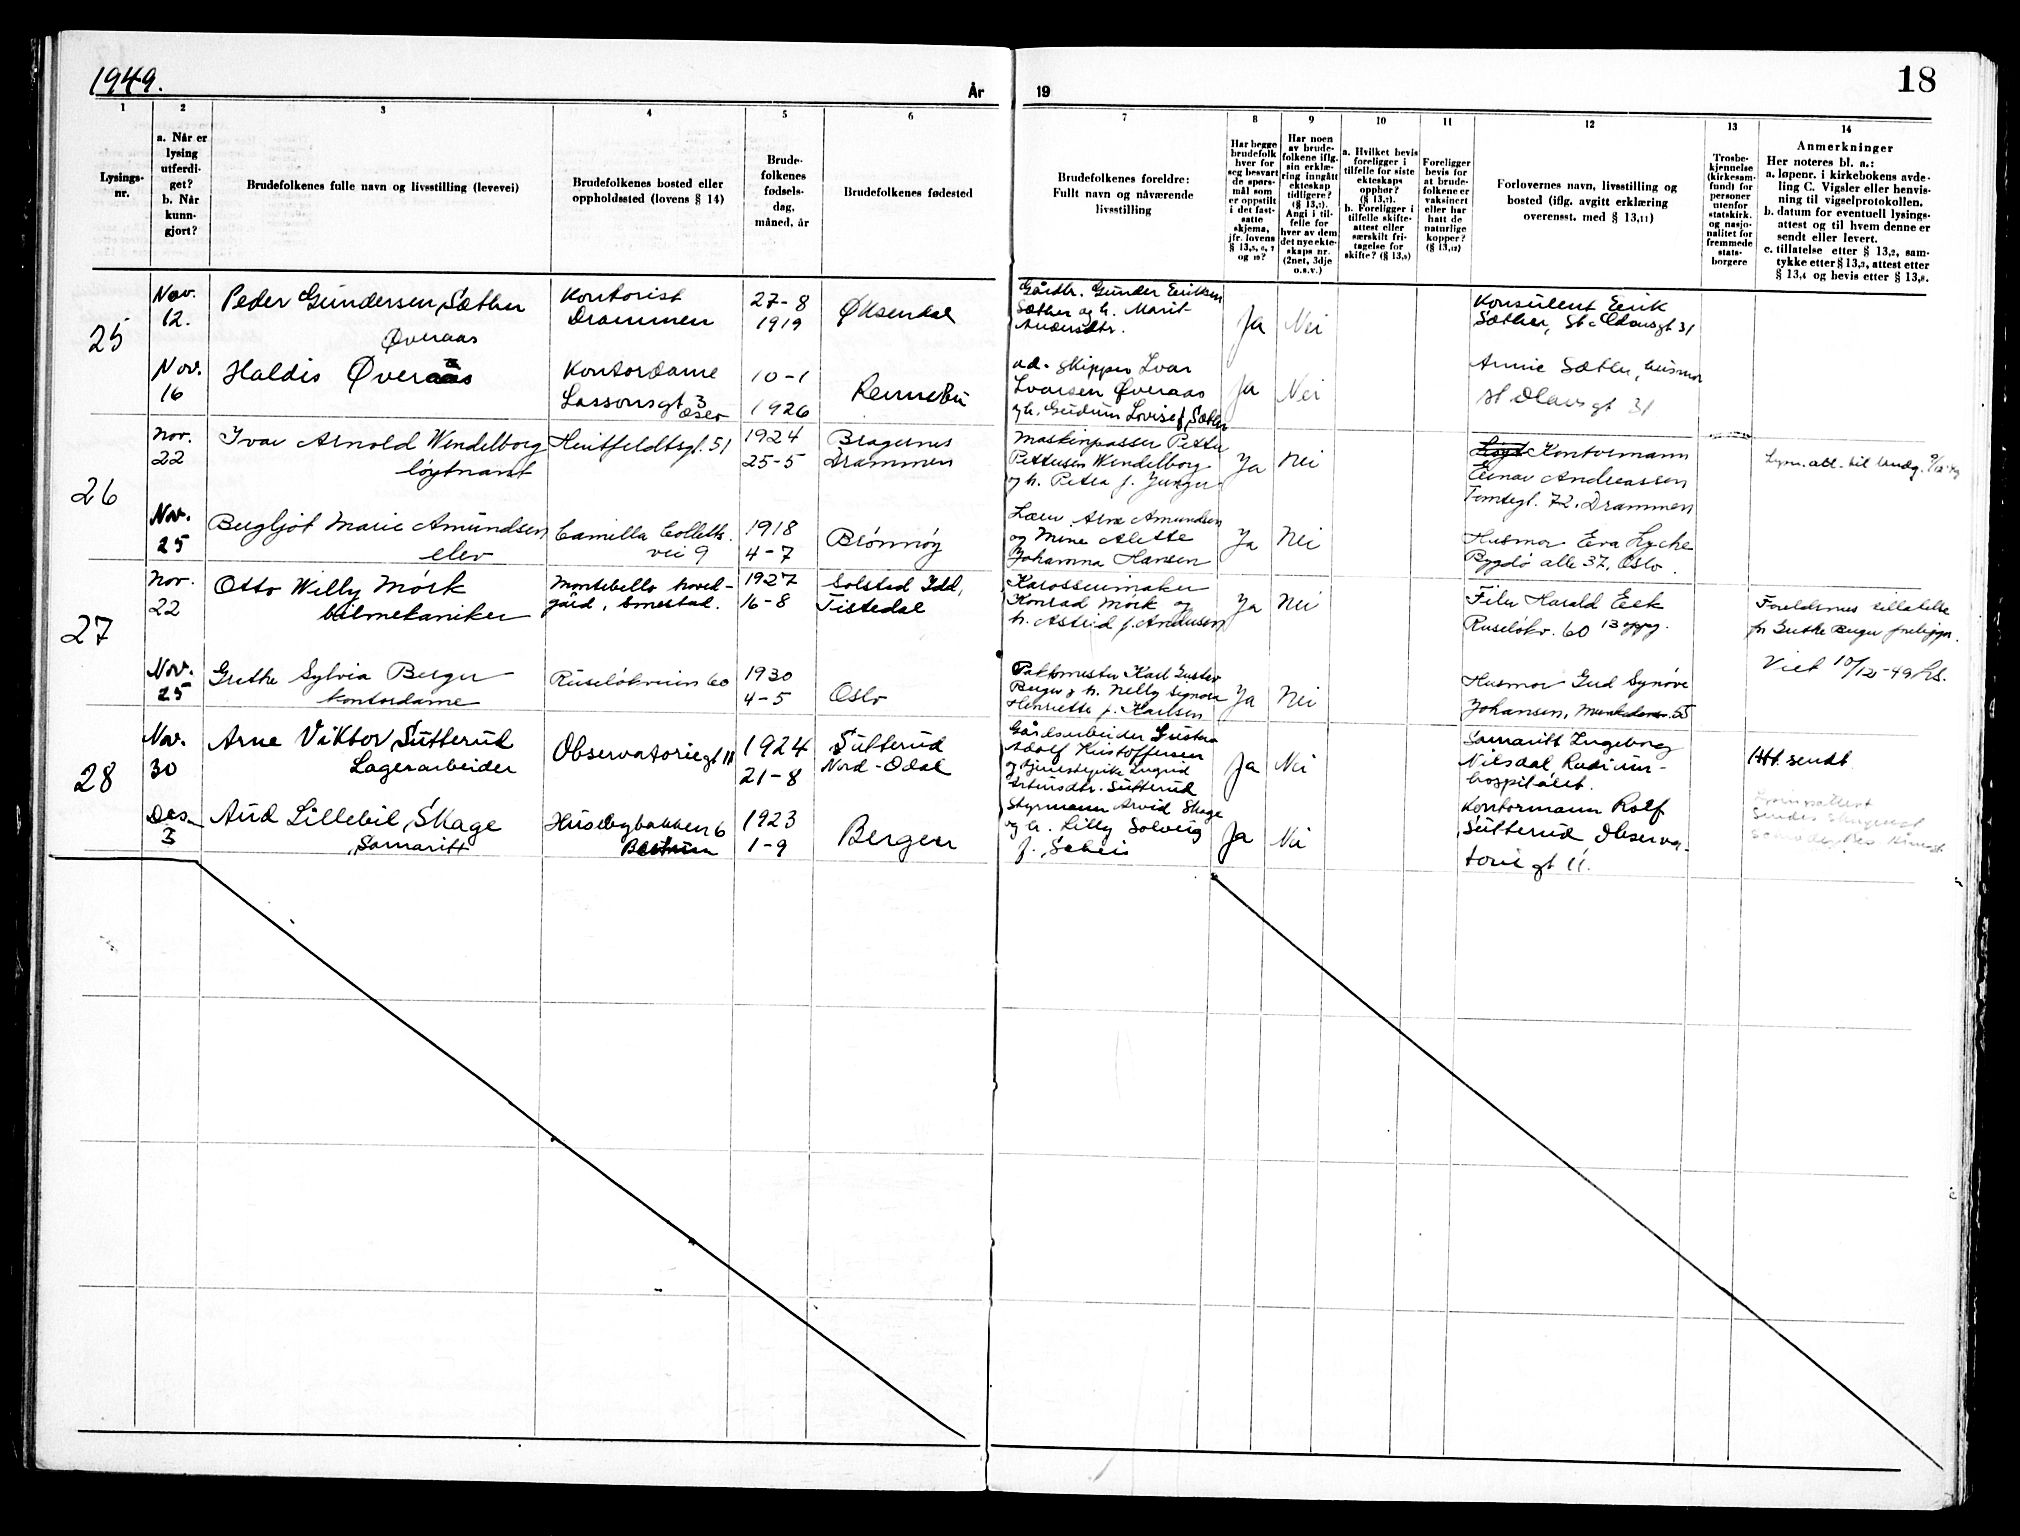 1949.
År
19
18
1
2
3
4
5
6
7
8
9
10
11
12
13
14
Lysings-
nr.
a. Når er
lysing
utferdi-
get?
b. Når
kunn-
gjort?
Brudefolkenes fulle navn og livsstilling (levevei)
Brudefolkenes bosted eller
oppholdssted (lovens § 14)
Brude-
folkenes
fødsels-
dag,
måned, år
Brudefolkenes fødested
Brudefolkenes foreldre:
Fullt navn og nåværende
livsstilling
Har begge
brudefolk
hver for
seg besvart
de spørs-
mål som
er oppstilt
i det fast-
satte
skjema,
jfr. lovens
og 10?
Har noen
av brude-
folkene iflg.
sin erklæ-
ring inngått
ekteskap
tidligere?
Angi i til-
felle for
hver av dem
det nye ekte-
skaps nr.
(2net, 3dje
o.s.v.)
a. Hvilket bevis
foreligger i
tilfelle for siste
ekteskaps
opphør?
b. Foreligger i
tilfelle skifte-
attest eller
særskilt fri-
tagelse for
Foreligger
bevis for
at brude-
folkene er
vaksinert
eller har
hatt de
naturlige
kopper?
Forlovernes navn, livsstilling og
bosted (iflg. avgitt erklæring
overensst. med § 13,11)
Trosbe-
kjennelse
(kirkesam-
fund) for
personer
utenfor
statskirk.
og nasjo-
nalitet for
fremmede
stats-
borgere
Anmerkninger
Her noteres bl. a.:
a. løpenr. i kirkebokens avde-
ling C. Vigsler eller henvis-
ning til vigselprotokollen.
b. datum for eventuell lysings-
attest og til hvem denne er
sendt eller levert.
c. tillatelse etter § 13,2, sam-
tykke etter § 13,3, attest etter
§ 13,4 og bevis etter § 13,8.
25
Nov.
12.
Peder Gundersen Sæther
Kontorist
Drammen
27-8
1919
Øksendal
Gårdbr. Gunder Eriksen
Sæther og h. Marit
Ja
Nei
Konsulent Eirik
Sæther, St. Olavsgt 31
Øveraas
Nov.
16
Haldis Øveraas
Kontordame
Lassonsgt 3
Oslo
10-1
1926
Rennebu
Skipper Ivar
Ivarsen Øveraas
og h. Gudrun Lovise f. Sæther
Ja
Nei
Annie Sæther, husmor
St Olavsgt 31
26
Nov.
22
Ivar Arnold Wendelborg
løytnant
Huitfeldtsgt. 51
1924
25-5
Bragernes
Drammen
Maskinpasser Petter
Pettersen Wendelborg
og h. Petra f.
Ja
Nei
Kontormann
Einar Andreassen
Tomtegt. 72, Drammen
Lysn.att. til
Nov.
25
Bergljot Marie Amundsen
elev
Camilla Colletts
vei 9
1918
4-7
Brønnøy
Arne Amundsen
og Mine Alette
Johanna Hansen
Ja
Nei
Husmor Eva Lyche
Bygdø alle 37, Oslo.
27
Nov.
22
Otto Willy Mörk
bilmekaniker
Montebello hoved-
gård, Smestad.
1927
16-8
Solstad Idd,
Tistedal
Karosserimaker
Konrad Mörk og
h. Astrid f. Andersen
Ja
Nei
Filer Harald Eek
Ruseløkv. 60 13 oppg.
Foreldrenes tillatelse
for Grethe Berger foreligger.
Viet 10/12-49
Nov.
25
Grethe Sylvia Berger
kontordame
Ruseløkveien 60
1930
4-5
Oslo
Pakkmester Karl Gustav
Berger og h. Nelly Signora
Henriette f. Karlsen
Ja
Nei
Husmor Gud Synøve
Johansen,
28
Nov.
30
Arne Viktor Sutterud
Lagerarbeider
Observatoriegt 11
1924
21-8
Sutterud
Nord-Odal
Gårdsarbeider Gustav
Adolf Kristoffersen
Ingrid
Sutterud
Ja
Nei
Samaritt Ingeborg
Nilsdal Radium-
hospitalet.
Att. sendt
Des.
3
Aud Lillebil Skage
Samaritt
Husebybakken 6
Bestum
1923
1-9
Bergen
Styrmann Arvid Skage
og h. Lilly Solveig
f.
Ja
Nei
Kontormann Rolf
Sutterud Observa-
toriegt 11.